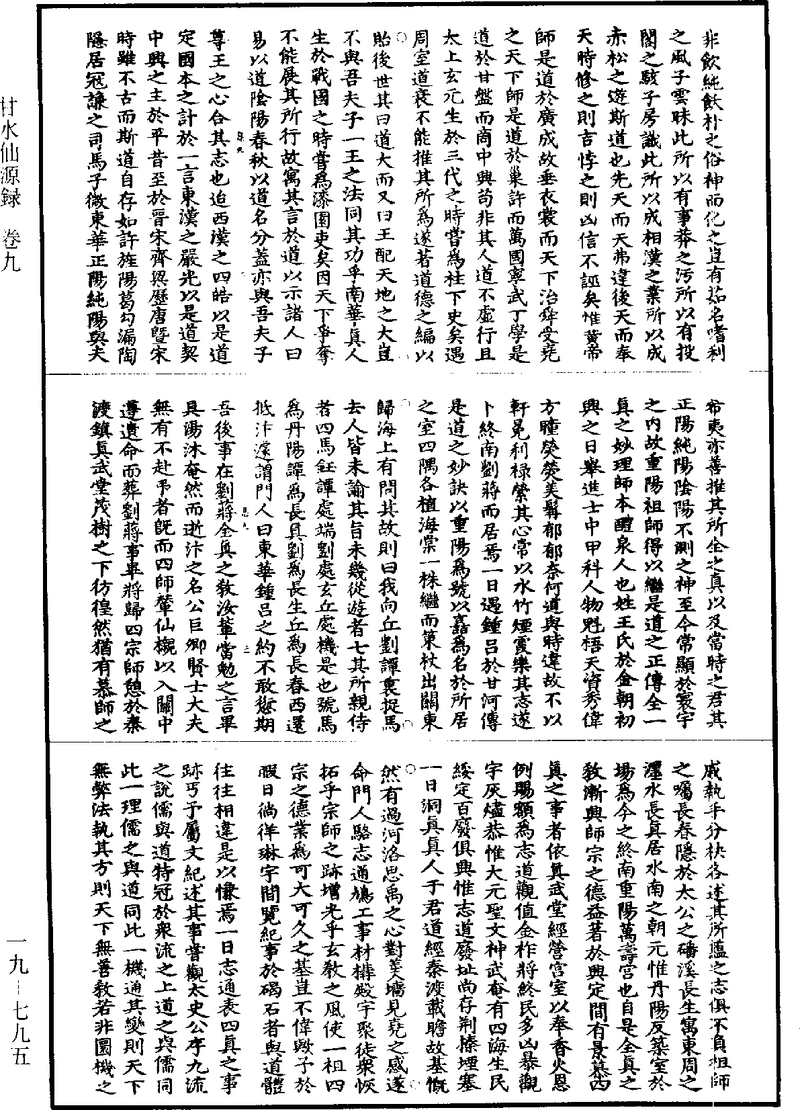 非飲純飲朴之俗神而化之豈有茹名嗜利
之風子雲昧此所以有事莽之污所以有投
閣之駭子房識此所以成相漢之業所以成
赤松之遊斯道也先天而天弗違後天而奉
天時修之則吉悖之則凶信不誣矣惟黄帝
師是道於廣成故垂衣裳而天下治舜受堯
之天下師是道於巢許而萬國寧武丁學是
道於甘盤而商中興苟非其人道不虛行且
太上玄元生於三代之時嘗為柱下史矣遇
周室道衰不能推其所為遂著道德之編以
貽後世其曰道大而又曰王配天地之大豈
不與吾夫子一王之法同其功乎南華真人
生於戰國之時嘗為漆園吏矣因天下爭奪
不能展其所行故寓其言於道以示諸人曰
易以道陰陽春秋以道名分蓋亦與吾夫子
尊王之心合其志也迨西漢之四皓以是道
定國本之計於一言東漢之嚴光以是道契
中興之主於平昔至於晉宋齊梁歷唐暨宋
時雖不古而斯道自存如許旌陽葛勾漏陶
隱居寇謙之司馬子微東華正陽純陽與夫
希夷亦善推其所全之真以及當時之君其
正陽純陽陰陽不測之神至今常顯於寰宇
之内故重陽祖師得以繼是道之正傳全一
真之妙理師本醴泉人也姓王氏於金朝初
興之日舉進士中甲科人物魁梧天資秀偉
方瞳熒熒美髯郁郁奈何道與時違故不以
軒冕利祿縈其心常以水竹煙霞樂其志遂
卜終南劉蔣而居焉一日遇鍾吕於甘河傳
是道之妙訣以重陽為號以嚞為名於所居
之室四隅各植海棠一株繼而策杖出關東
歸海上有問其故則曰我向丘劉譚裏捉馬
去人皆未諭其旨未幾從遊者七其所親侍
者四馬鈺譚處端劉處玄丘處機是也號馬
為丹陽譚為長真劉為長生丘為長春西還
抵汴濠謂門人曰東華鍾吕之約不敢愆期
吾後事在劉蔣全真之教汝輩當勉之言畢
具湯沐奄然而逝汴之名公巨卿賢士大夫
無有不赴弔者旣而四師輦仙櫬以入關中
遵遺命而葬劉蔣事畢將歸四宗師憩於秦
渡鎮真武堂茂樹之下彷徨然猶有慕師之
戚執手分袂各述其所藴之志俱不負祖師
之囑長春隱於太公之磻溪長生寓東周之
瀍水長真居水南之朝元惟丹陽反築室於
場為今之終南重陽萬壽宫也自是全真之
敎漸興師宗之德益著於興定間有景慕西
真之事者依真武堂經營宫室以奉香火恩
例賜額為志道觀值金祚將終民多凶暴觀
宇灰燼恭惟大元聖文神武奄有四海生民
綏定百廢俱興惟志道廢址尚存荆榛堙塞
一日洞真真人于君道經秦渡載瞻故基慨
然有過河洛思禹之心對羮墻見堯之感遂
命門人駱志通鳩工事材構殿宇聚徒衆恢
拓乎宗師之跡增光乎玄敎之風使一祖四
宗之德業為可大可久之基豈不偉歟子於
暇日徜徉琳宇間覽紀事於碣石者與道體
往往相違是以慊焉一日志通表四真之事
跡丐予屬文紀述其事嘗觀太史公序九流
之說儒與道特冠於衆流之上道之與儒同
此一理儒之與道同此一機通其變則天下
無弊法執其方則天下無善敎若非圓機之
甘水仙源録　卷九
一九—七九五